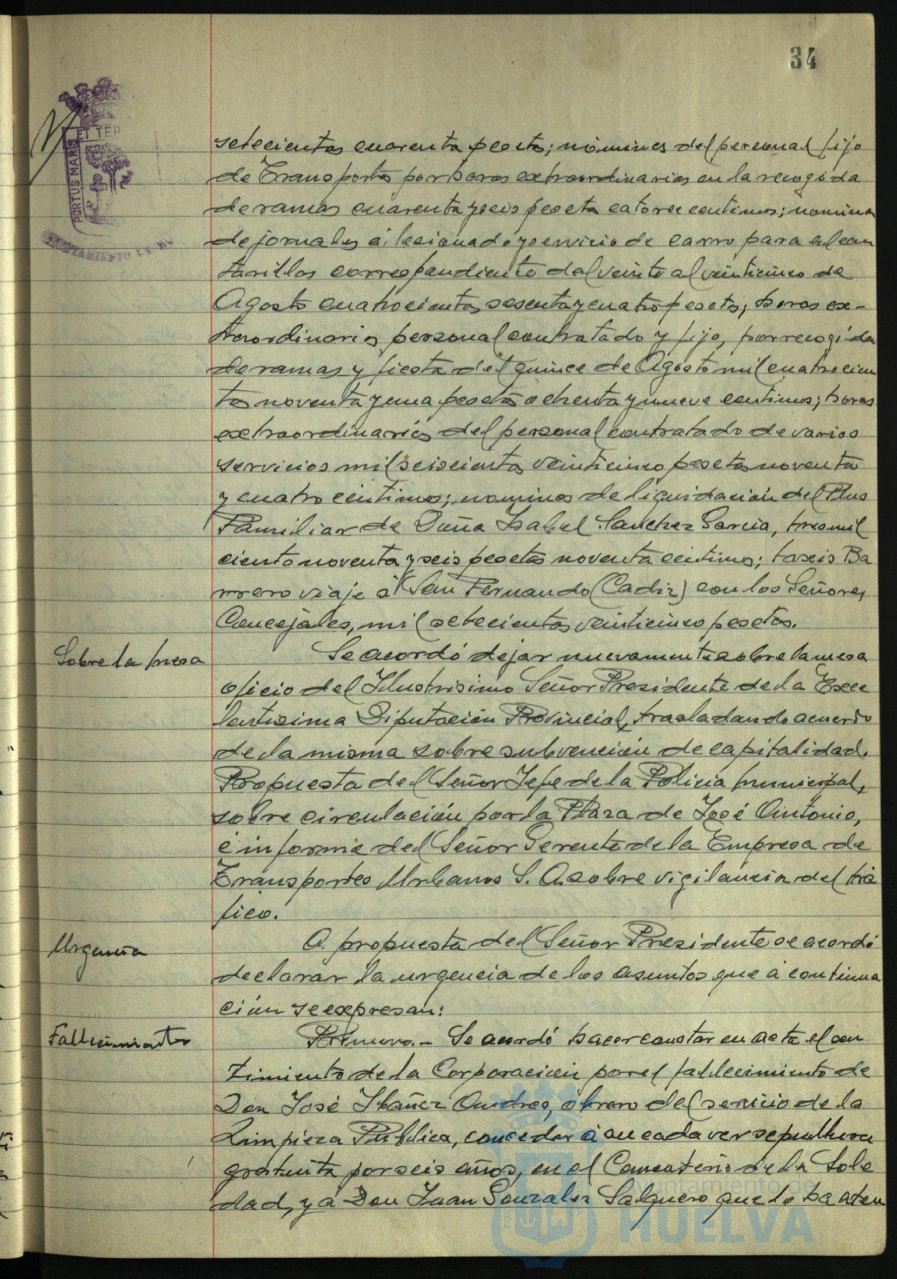 34
PORTUS MARIS
ET TER
AYUNTAMIENTO
setecientas cuarenta pesetas; nominas del personal fijo
de Transportes por horas extraordinarias en la recogida
de ramas cuarenta y seis peseta catorce centimos; nomina
de jornales á lesionado y servicio de carro para alcan
tarillas correspondiente del veinte al veinticinco de
Agosto cuatrocientas sesenta y cuatro pesetas; horas ex-
traordinarias personal contratado y fijo, por recogida
de ramas y fiesta del quince de Agosto mil cuatrocien
tas noventa y una pesetas ochenta y nueve centimos; horas
extraordinarias del personal contratado de varios
servicios mil seiscientas veinticinco pesetas noventa
y cuatro centimos; nominas de liquidación del Plus
Familiar de Doña Isabel Sanchez Garcia, tres mil
ciento noventa y seis pesetas noventa centimos; taxis Ba
rrero viaje á San Fernando (Cadiz) con los Señores
Concejales, mil setecientas veinticinco pesetas.
Sobre la mesa
Se acordó dejar nuevamente sobre la mesa
oficio del Ilustrisimo Señor Presidente de la Exce
lentisima Diputación Provincial, trasladando acuerdo
de la misma sobre subvención de capitalidad.
Propuesta del Señor Jefe de la Policia municipal,
sobre circulación por la Plaza de José Antonio,
é informe del Señor Gerente de la Empresa de
Transportes Urbanos S. A. sobre vigilancia del trá
fico.
Urgencia
A propuesta del Señor Presidente se acordó
declarar la urgencia de los asuntos que á continua
ción se expresan:
Fallecimiento
Primero.- Se acordó hacer constar en acta el sen
timiento de la Corporación por el fallecimiento de
Don José Ibañez Andres, obrero del servicio de la
Limpieza Pública, conceder á su cadaver sepultura
gratuita por seis años, en el Cementerio de la Sole
dad, y á Don Juan Gonzalez Salguero que lo ha aten
Ayuntamiento de
HUELVA